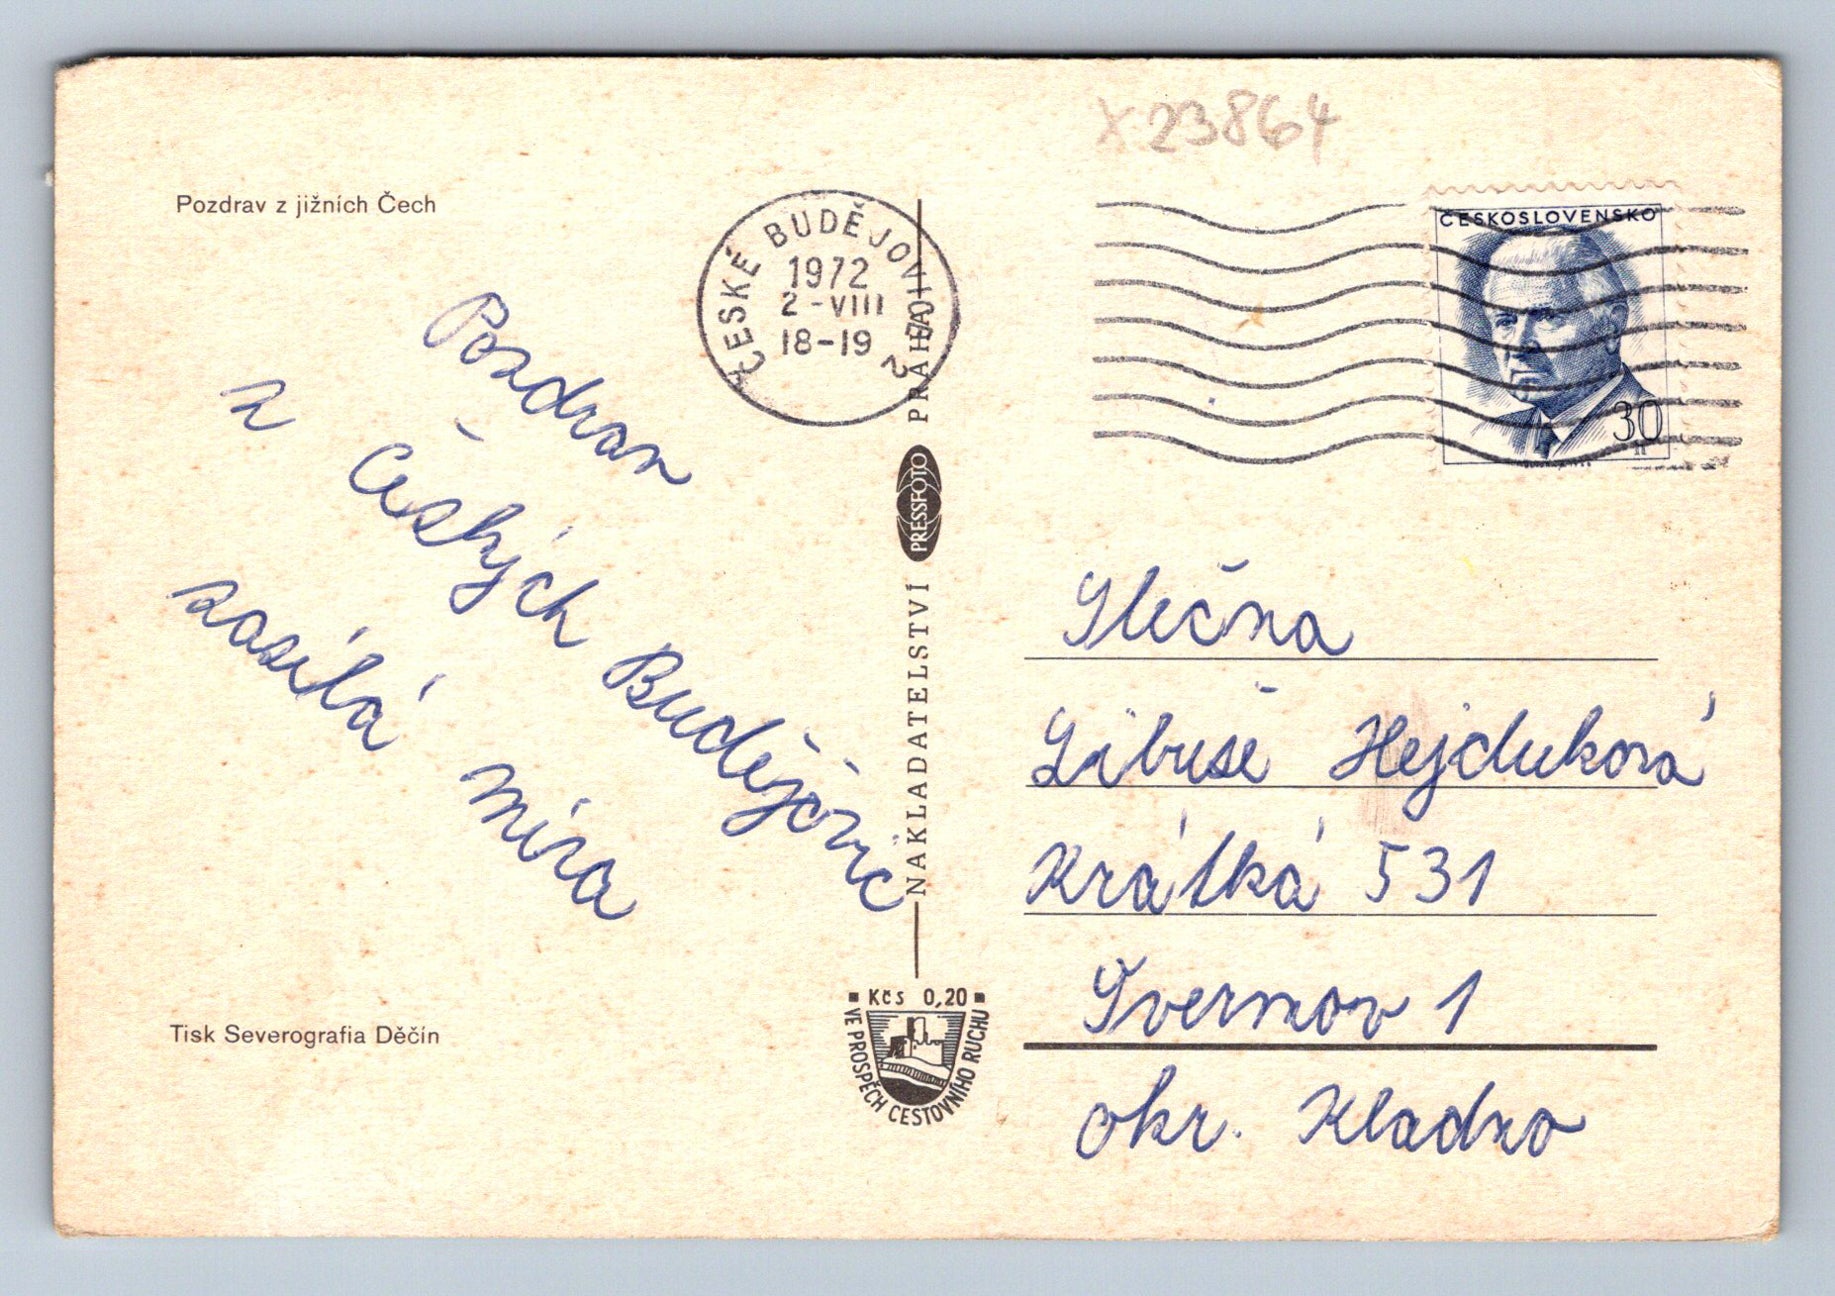 X 23864
Pozdrav z jižních Čech
ČESKÉ BUDĚJOVICE 2
1972
2-VIII
18-19
ČESKOSLOVENSKO
30
h
Pozdrav
z Českých Budějovic
zasílá Míra
NAKLADATELSTVÍ PRESSFOTO PRAHA
Slečna
Libuše Hejduková
Krátká 531
Švermov 1
okr. Kladno
Tisk Severografia Děčín
Kčs 0,20
VE PROSPĚCH CESTOVNÍHO RUCHU